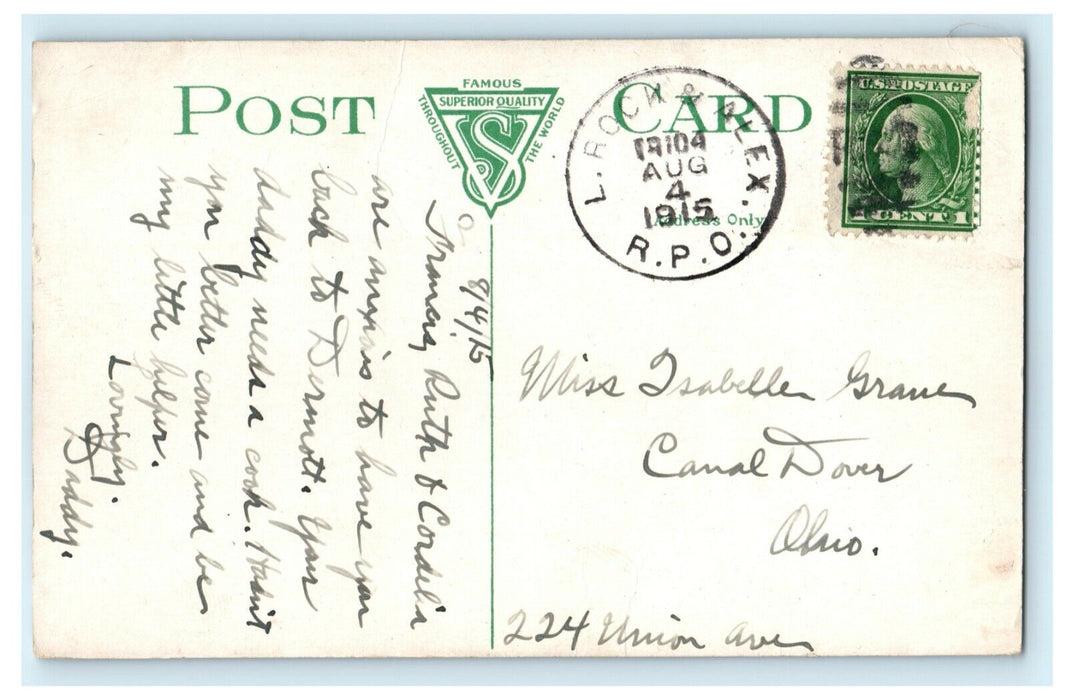 POST CARD
FAMOUS
SUPERIOR QUALITY
THROUGHOUT
THE WORLD
VS
Address Only
L. ROCK & ALEX.
TR104
AUG
4
1915
R.P.O.
U.S. POSTAGE
1 CENT 1
8/4/15
Frances, Ruth & Cordelia
are anxious to have you
back to Dermott. Your
daddy needs a cook. Hadn't
you better come and be
my little helper.
Lovingly.
Daddy.
Miss Isabelle
Canal Dover
Ohio.
224 Union Ave